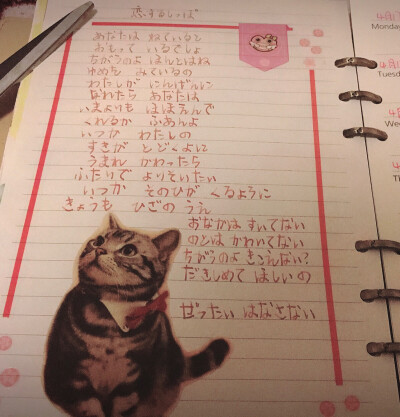 恋するしっぽ
あなたは ねていると
おもって いるでしょ
ちがうのよ ほんとはね
ゆめを みているの
わたしが にんげんに
なれたら あなたは
いまよりも ほほえんで
くれるか ふあんよ
いつか わたしの
すきが とどくよに
うまれ かわったら
ふたりで よりそいたい
いつか そのひが くるように
きょうも ひざの うえ
おなかは すいてない
のどは かわいてない
ちがうのよ きこえない?
だきしめて ほしいの
ぜったい はなさない
Monday
Tuesday